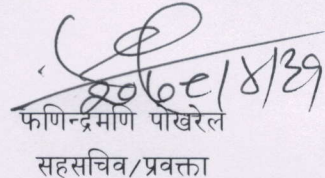 २०७९/४/३१
फणिन्द्रमणि पोखरेल
सहसचिव/प्रवक्ता